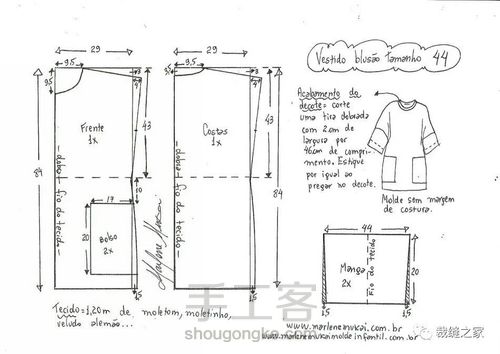 Vestido blusão tamanho 44
29
9,5
9,5
3
4
43
84
Frente
1x
dobra
fio do tecido
10
17
20
Bolso
2x
1,5
Marlene Mukai
29
9,5
3
43
84
Costas
1x
dobra
fio do tecido
1,5
Acabamento do
decote = corte
uma tira dobrada
com 2 cm de
largura por
46cm de compri-
mento. Estique
por igual ao
pregar no decote.
Molde sem margem
de costura.
44
20
Manga
2x
Fio do tecido
1,5
1,5
Tecido = 1,20m de moletom, moletinho,
veludo alemão...
www.marlenemukai.com.br
www.marlenemukaimoldeinfantil.com.br
手工客
shougongke.com
裁缝之家